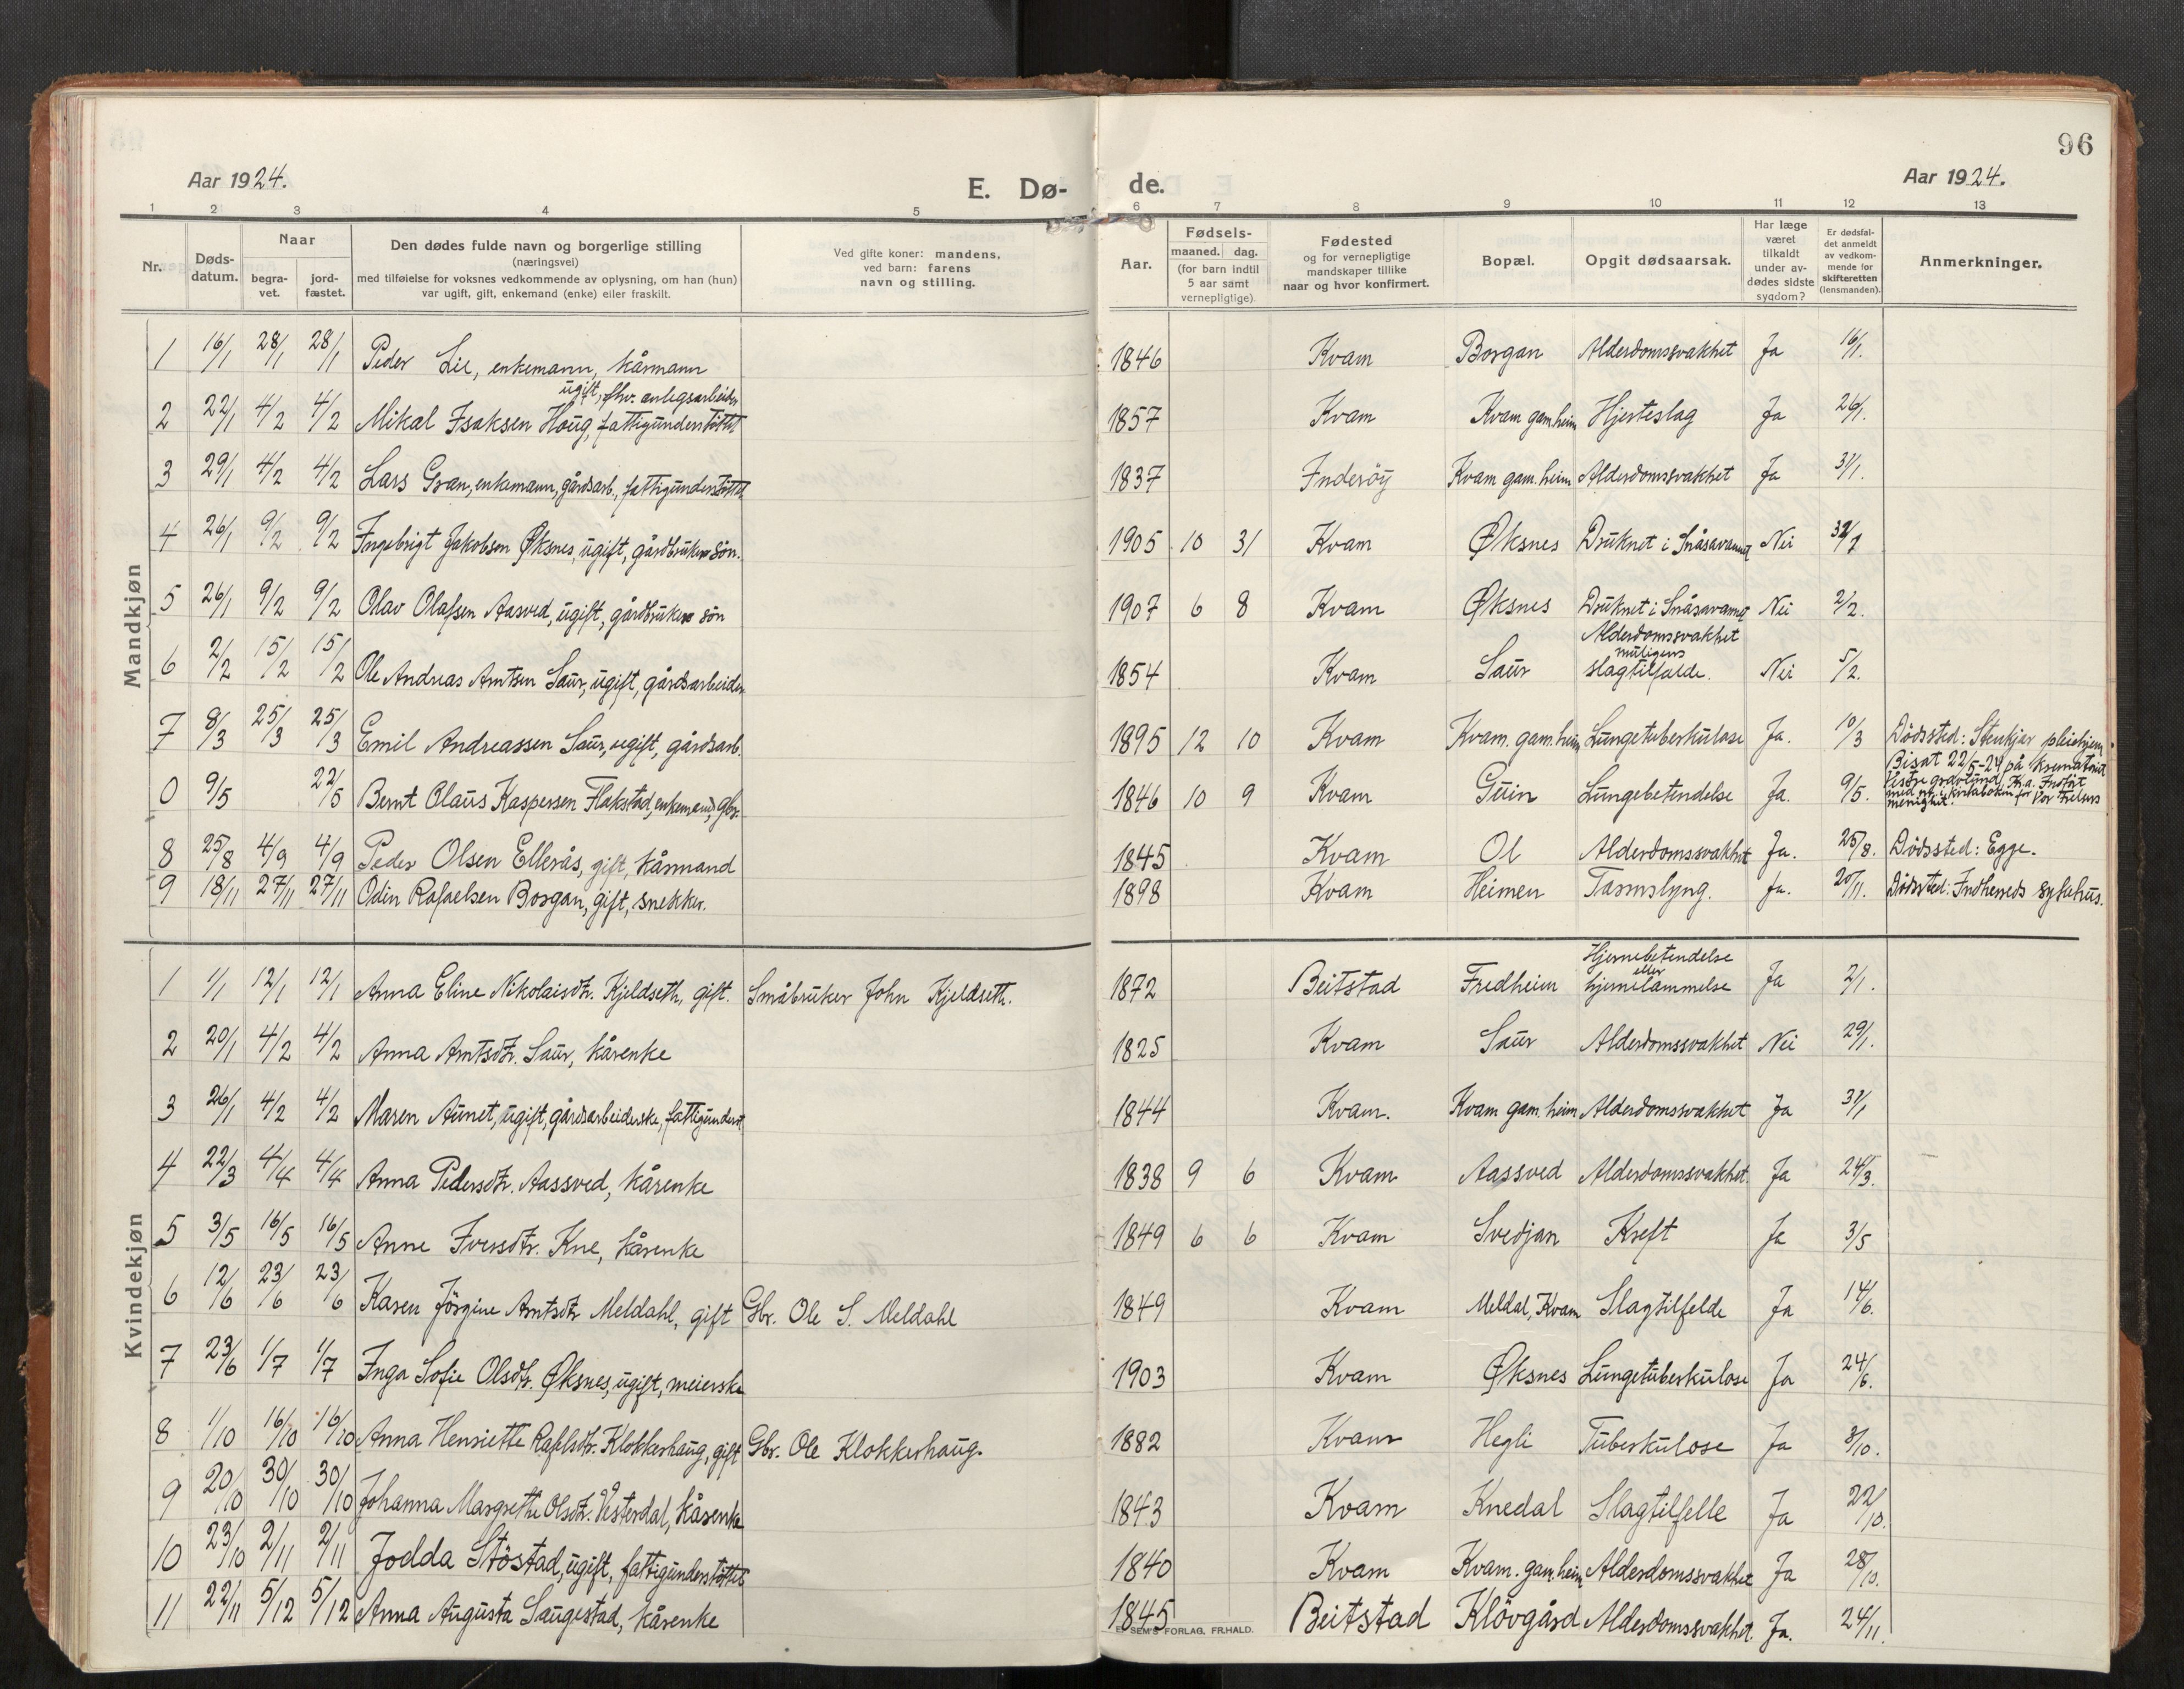 96
Aar 1924.
E. Dø-
de.
Aar 1924.
1 2 3 4 5 6 7 8 9 10 11 12 13
Nr.
Døds-
datum.
Naar
begra-
vet.
jord-
fæstet.
Den dødes fulde navn og borgerlige stilling
(næringsvei)
med tilføielse for voksnes vedkommende av oplysning, om han (hun)
var ugift, gift, enkemand (enke) eller fraskilt.
Ved gifte koner: mandens,
ved barn: farens
navn og stilling.
Aar.
Fødsels-
maaned. dag.
(for barn indtil
5 aar samt
vernepligtige)
Fødested
og for vernepligtige
mandskaper tillike
naar og hvor konfirmert.
Bopæl.
Opgit dødsaarsak.
Har læge
været
tilkaldt
under av-
dødes sidste
sygdom?
Er dødsfal-
det anmeldt
av vedkom-
mende for
skifteretten
(lensmanden).
Anmerkninger.
Mandkjøn
1 16/1 28/1 28/1 Peder Lie, enkemann, kårmann 1846 Kvam Borgan Alderdomssvakhet Ja 16/1.
ugift, fhv. anlegsarbeider
2 22/1 4/2 4/2 Mikal Isaksen Houg, fattigunderstöttet 1857 Kvam Kvam gam.heim Hjerteslag Ja 26/1.
3 29/1 4/2 4/2 Lars Gran, enkemann, gårdsarb., fattigunderstöttet 1837 Inderöy Kvam gam. heim Alderdomssvakhet Ja 31/1.
4 26/1 9/2 9/2 Ingebrigt Jakobsen Øksnes, ugift, gårdbrukersön. 1905 10 31 Kvam Øksnes Druknet i Snåsavannet Nei
5 26/1 9/2 9/2 Olav Olafsen Aasved, ugift, gårdbruker sön 1907 6 8 Kvam Øksnes Druknet i Snåsavannet Nei 2/2.
6 2/2 15/2 15/2 Ole Andreas Arntsen Saur, ugift, gårdsarbeider 1854 Kvam Saur Alderdomssvakhet
muligens
slagtilfalde. Nei 5/2.
7 8/3 25/3 25/3 Emil Andreassen Saur, ugift, gårdsarb. 1895 12 10 Kvam Kvam. gam.heim Lungetuberkulose Ja. 10/3 Dödssted: Stenkjær pleiehjem
0 9/5 22/5 Bernt Olaus Kaspersen Flakstad, enkemand, gbr. 1846 10 9 Kvam Guin Lungebetendelse Ja. 9/5. Bisat 22/5-24 på krematoriet
Vestre gravlund, Kr.a. Indfört
med nr. i kirkeboken for Vor Frelsers
menighet.
8 25/8 4/9 4/9 Peder Olsen Ellerås, gift, kårmand 1845 Kvam Ol Alderdomssvakhet Ja. 25/8. Dödssted: Egge.
9 18/11 27/11 27/11 Odin Rafaelsen Borgan, gift, snekker. 1898 Kvam Heimen Tarmslyng. Ja. 20/11. Dödssted: Indherreds sykehus.
Kvindekjøn
1 1/1 12/1 12/1 Anna Eline Nikolaisdtr. Kjeldseth, gift. Småbruker John Kjeldseth. 1872 Beitstad Fredheim Hjernebetendelse
eller
hjernelammelse Ja 2/1.
2 20/1 4/2 4/2 Anna Arntsdtr. Saur, kårenke 1825 Kvam Saur Alderdomssvakhet Nei 29/1.
3 26/1 4/2 4/2 Maren Aunet, ugift, gårdsarbeiderske, fattigunderst. 1844 Kvam. Kvam gam. heim Alderdomssvakhet Ja 31/1
4 22/3 4/4 4/4 Anna Pedersdtr. Aassved, kårenke 1838 9 6 Kvam Aassved Alderdomssvakhet. Ja 24/3.
5 3/5 16/5 16/5 Anne Iversdtr. Kne, kårenke 1849 6 6 Kvam Svedjan Kreft Ja 3/5
6 12/6 23/6 23/6 Karen Jörgine Arntsdtr Meldahl, gift Gbr. Ole S. Meldahl 1849 Kvam Meldal, Kvam Slagtilfelde Ja 14/6.
7 23/6 1/7 1/7 Inga Sofie Olsdtr. Øksnes, ugift, meierske 1903 Kvam Øksnes Lungetuberkulose Ja 24/6.
8 1/10 16/10 16/10 Anna Henriette Rafelsdtr. Klokkerhaug, gift Gbr. Ole Klokkerhaug. 1882 Kvam Hegli Tuberkulose Ja 3/10.
9 20/10 30/10 30/10 Johanna Margrethe Olsdtr. Vesterdal, kårenke 1843 Kvam Knedal Slagtilfelle Ja 22/10.
10 23/10 2/11 2/11 Jodda Stöstad, ugift, fattigunderstöttet 1840 Kvam Kvam. gam.heim Alderdomssvakhet Ja 28/10.
11 22/11 5/12 5/12 Anna Augusta Saugestad, kårenke 1845 Beitstad Klövgård Alderdomssvakhet. Ja. 24/11.
E. SEM'S FORLAG, FR.HALD.